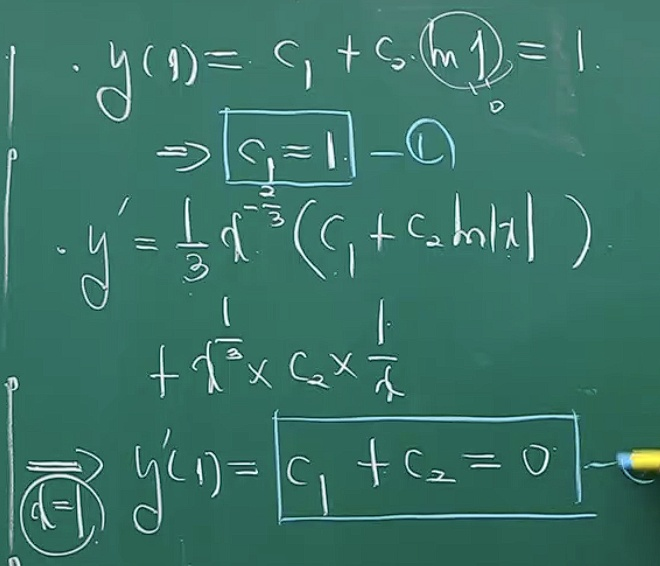 · y(1) = c₁ + c₂ (ln 1) = 1.
0
⇒ c₁ = 1. — ①
· y′ = 1/3 x^(-2/3) (c₁ + c₂ ln|x|).
+ x^(1/3) × c₂ × 1/x
⇒ y′(1) = c₁ + c₂ = 0 —
x=1